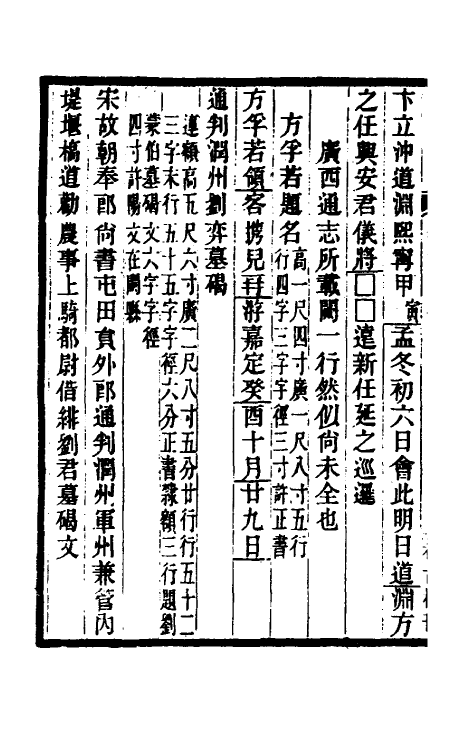 卞立沖道淵熙寧甲寅孟冬初六日會此明日道淵方
之任興安君儀將□□遠新任延之巡邏
廣西通志所載闕一行然似尚未全也
方孚若題名高一尺四寸廣一尺八寸五行
行四字三字字徑三寸許正書
方孚若領客擕兒荐游嘉定癸酉十月廿九日
通判潤州劉弈墓碣
連額高五尺六寸廣二尺八寸五分廿行行五十二
三字末行五十五字字徑六分正書隸額三行題劉
蒙伯墓碣文六字字徑
四寸許陽文在閩縣
宋故朝奉郎尚書屯田員外郎通判潤州軍州兼管內
堤堰橋道勸農事上騎都尉借緋劉君墓碣文